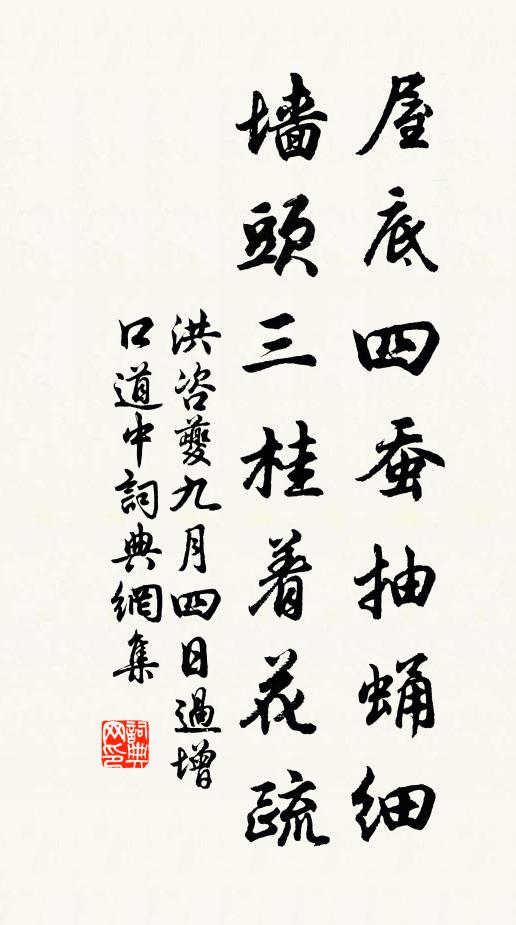 屋底四蚕抽蛹细
墙頭三桂着花疏
洪咨夔九月四日過增
口道中詞典網集
詞典網印